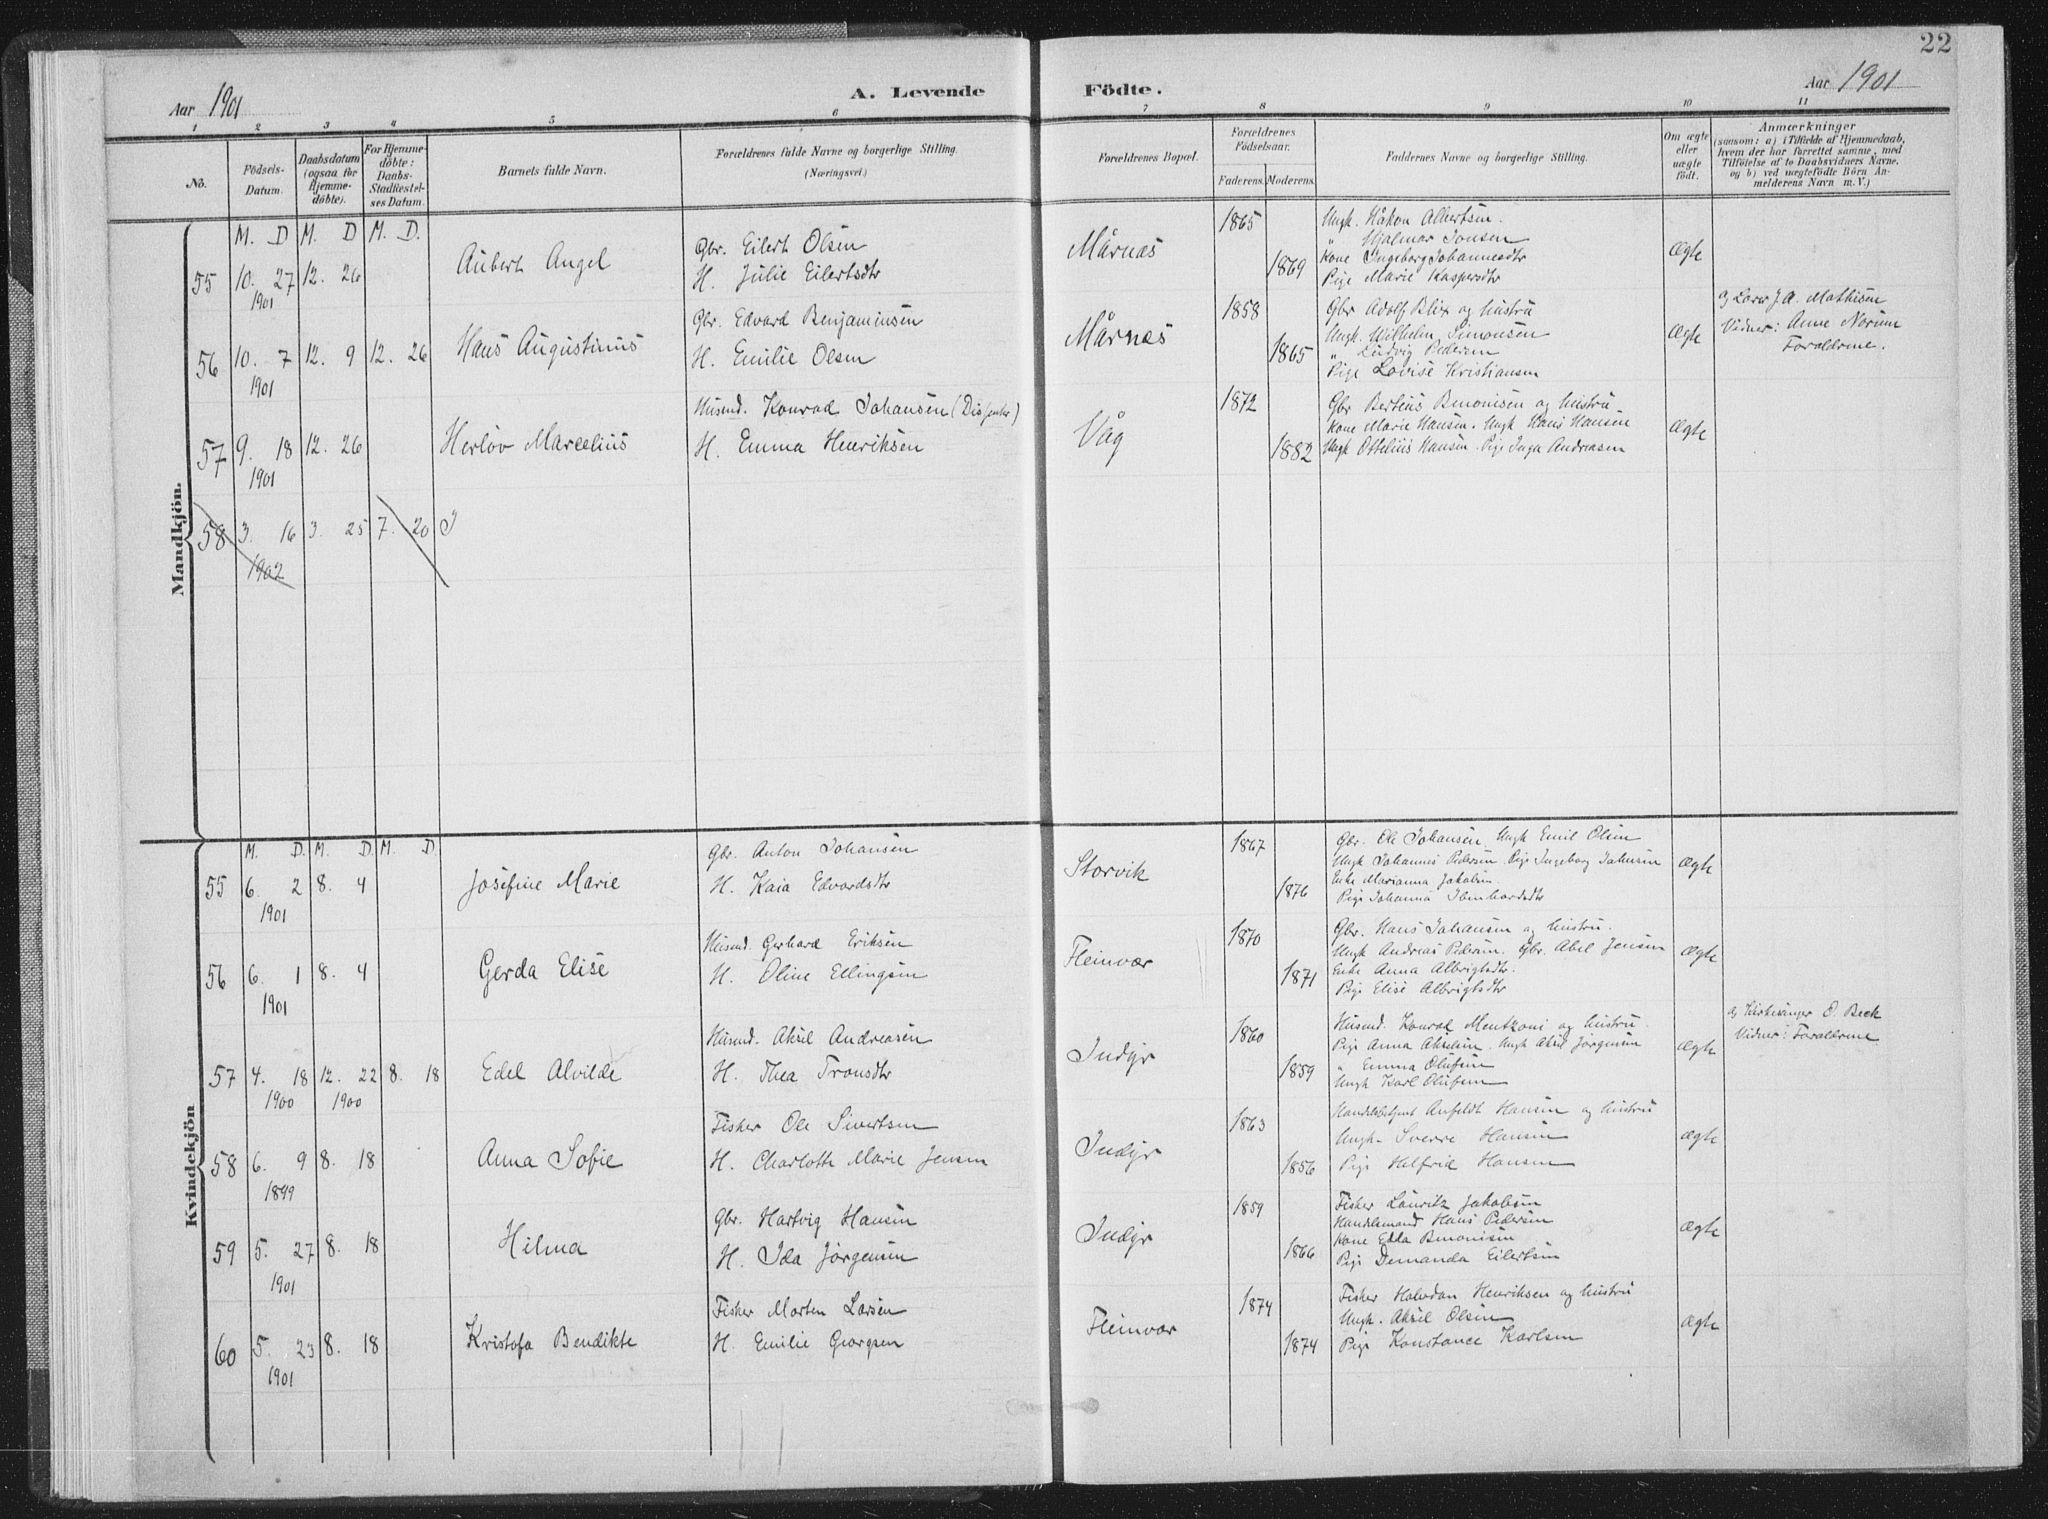 22
Aar 1901
A. Levende
Födte.
Aar 1901
1 2 3 4 5 6 7 8 9 10 11
No.
Födsels-Datum.
Daabsdatum (ogsaa for Hjemme-döbte).
For Hjemme-döbte: Daabs-Stadfæstel-ses Datum.
Barnets fulde Navn.
Forældrenes fulde Navne og borgerlige Stilling. (Næringsvei.)
Forældrenes Bopæl.
Forældrenes Födselsaar.
Faderens. Moderens.
Faddernes Navne og borgerlige Stilling.
Om ægte eller uægte födt.
Anmærkninger
(saasom: a) i Tilfælde af Hjemmedaab, hvem der har forrettet samme, med Tilföielse af to Daabsvidners Navne. og b) ved uægtefödte Börn An-melderens Navn m. V.)
Mandkjön.
M. D M. D M. D.
55 10. 27 1901 12. 26
Aubert Angel
Gbr. Eilert Olsen
H. Julie Eilertsdtr
Mårnæs
1865
1869
Ungk. Håkon Albertsen.
" Hjalmar Jonsen
Kone Ingeborg Johannesdtr
Pige Marie Kaspersdtr
Ægte
56 10. 7 1901 12. 9 12. 26
Hans Augustinus
Gbr. Edvard Benjaminsen
H. Emilie Olsen
Mårnæs
1858
1865
Gbr Adolf Blix og hustru
Ungk. Wilhelm Simonsen
" Ludvig Pedersen
Pige Lovise Kristiansen
Ægte
a) Lærer J. A. Mathisen
Vidner: Anne Norum
Forældrene.
57 9. 18 1901 12. 26
Herlöv Marcelius
Husmd. Konrad Johansen (Dissenter)
H. Emma Henriksen
Våg
1872
1882
Gbr Bertéus Benonisen og hustru
Kone Marie Hansen. Ungk Hans Hansen
Ungk Ottelius Hansen. Pige Inga Andreasen
Ægte
58 3. 16 1902 3. 25 7. 20 J
Kvindekjön
M. D. M. D. M. D.
55 6. 2 1901 8. 4
Josefine Marie
Gbr. Anton Johansen
H. Kaia Edvardsdtr
Storvik
1867
1876
Gbr. Ole Johansen. Ungk Emil Olsen
Ungk Johannes Pedersen Pige Ingeborg Johnsen
Enke Marianna Jakobsen
Pige Johanna
Ægte
56 6. 1 1901 8. 4
Gerda Elise
Husmd. Gerhard Eriksen
H. Oline Ellingsen
Fleinvær
1870
1871
Gbr. Hans Johansen og hustru.
Ungk Andreas Pedersen. Gbr. Abel Jensen
Enke Anna Albrigtsdtr.
Pige Elise Albrigtsdtr
Ægte
57 4. 18 1900 12. 22 1900 8. 18
Edel Alvilde
Husmd. Aksel Andreasen
H. Thea Tronsdtr
Indyr
1860
1859
Husmd. Konrad Mentzoni og hustru.
Pige Anna Akselsen. Ungk Aksel Jørgensen
" Emma Olufsen
Ungk Karl Olufsen
Ægte
a) Kirkesanger O. Beck
Vidner: Forældrene
58 6. 9 1899 8. 18
Anna Sofie
Fisker Ole Sivertsen
H. Charlotte Marie Jensen
Indyr
1863
1856
Handelsbetjent Anfeldt Hansen og hustru
Ungk. Sverre Hansen
Pige Helfrid Hansen
Ægte
59 5. 27 1901 8. 18
Hilma
Gbr. Hartvig Hansen
H. Ida Jørgensen
Indyr
1859
1866
Fisker Lauritz Jakobsen
Handelsmand Hans Pedersen
Kone Edla Benonisen
Pige Demanda Eilertsen
Ægte
60 5. 23 1901 8. 18
Kristofa Bendikte
Fisker Morten Larsen
H. Emilie Georgsen
Fleinvær
1874
1874
Fisker Halvdan Henriksen og hustru
Ungk. Aksel Olsen
Pige Konstance Karlsen
Ægte